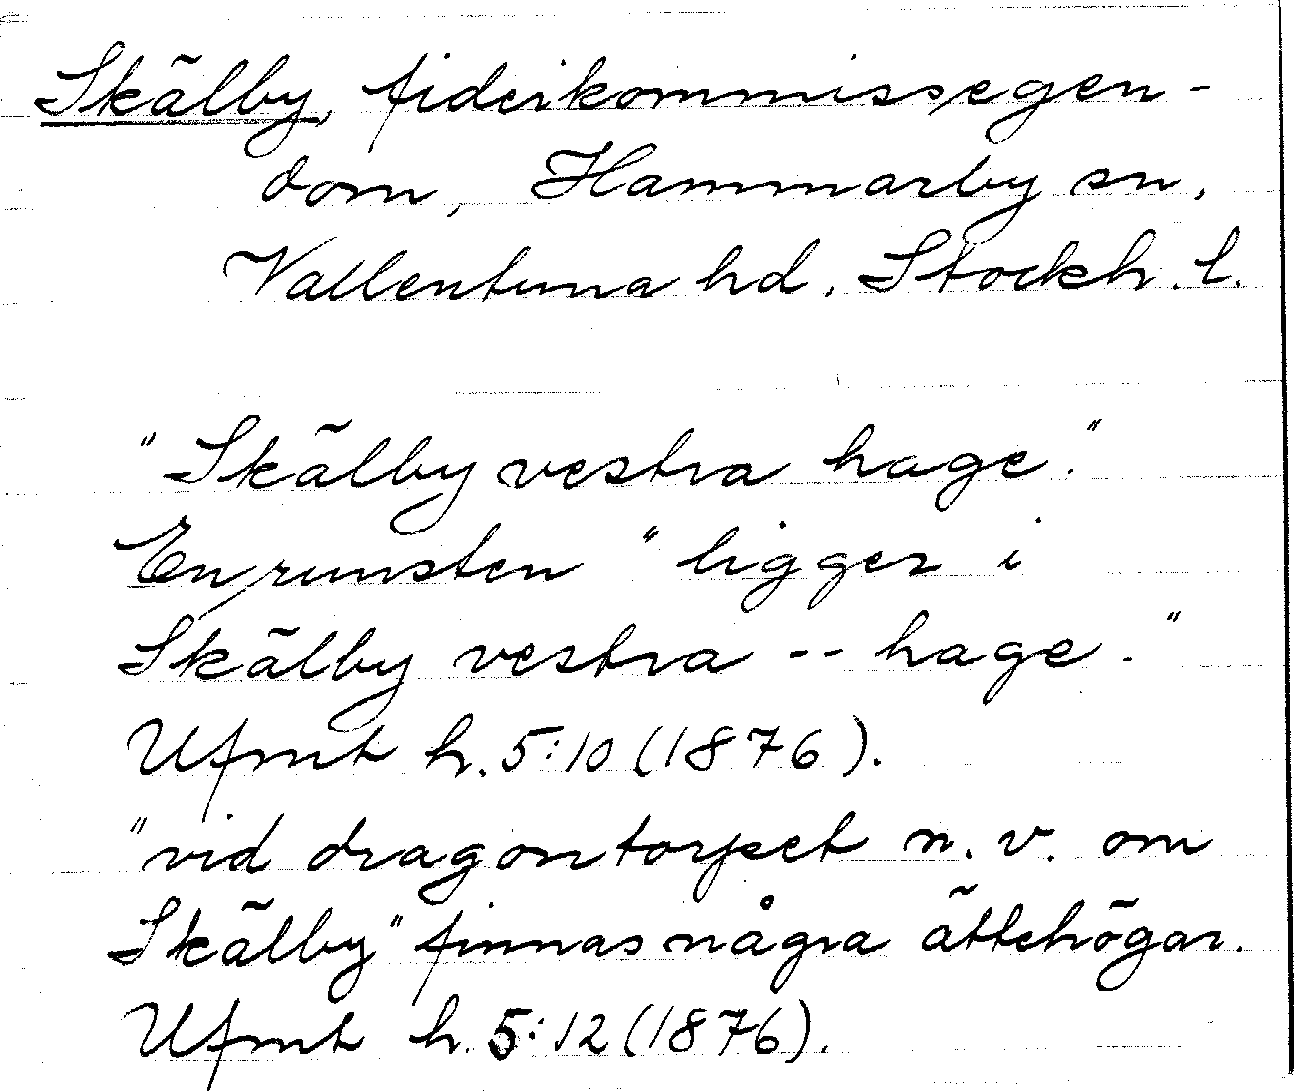 Skälby, fideikommissegen-
dom, Hammarby sn,
Vallentuna hd, Stockh. l.
"Skälby vestra hage."
En runsten "ligger i
Skälby vestra -- hage."
Ufmt h. 5:10 (1876).
"vid dragontorpet n. v. om
Skälby" finnas några ättehögar.
Ufmt h. 5:12 (1876).